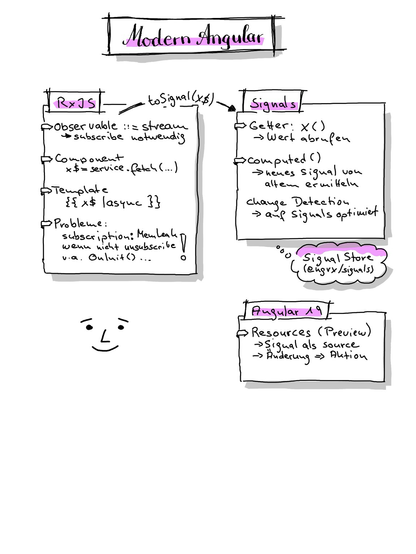 Modern Angular
RxJS
toSignal(x$)
Observable ::= stream
→ subscribe notwendig
Component
x$ = service.fetch(...)
Template
{{ x$ | async }}
Probleme:
subscription: MemLeak
wenn nicht unsubscribe
v.a. OnInit() ...
!
Signals
Getter: x()
→ Wert abrufen
computed()
→ neues Signal von
altem ermitteln
change Detection
→ auf Signals optimiert
Signal Store
(@ngrx/signals)
Angular 19
Resources (Preview)
→ Signal als source
→ Änderung ⇒ Aktion